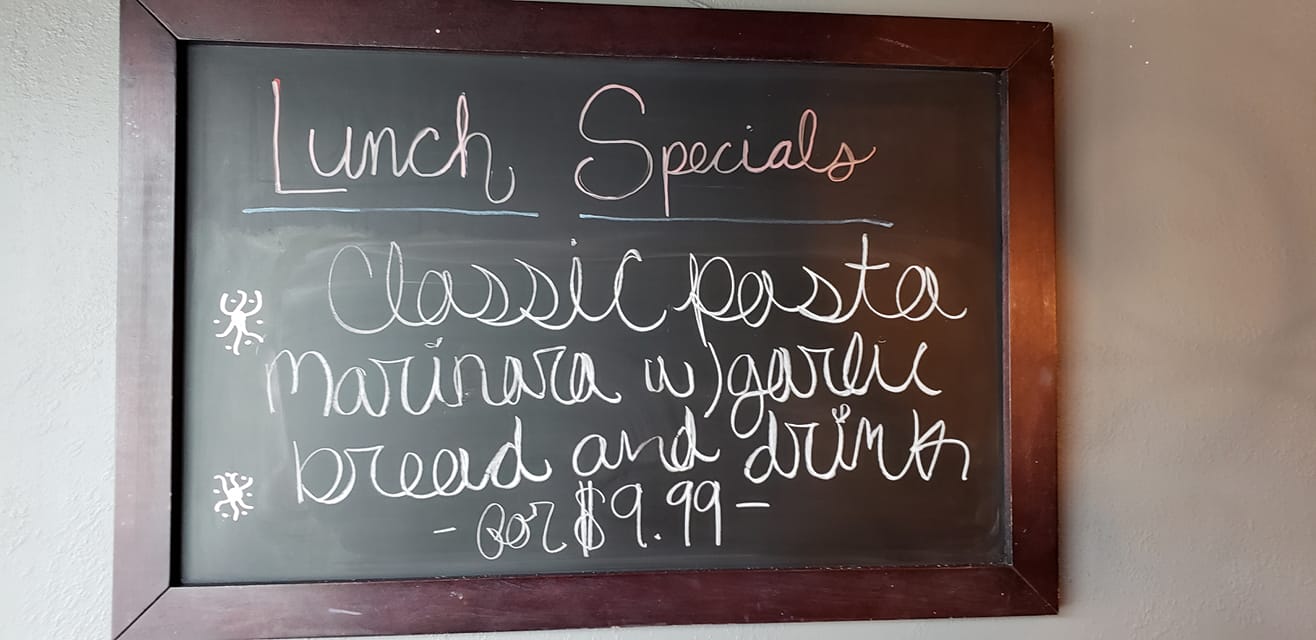 Lunch Specials
Classic pasta
marinara w/garlic
bread and drink
- for $9.99 -